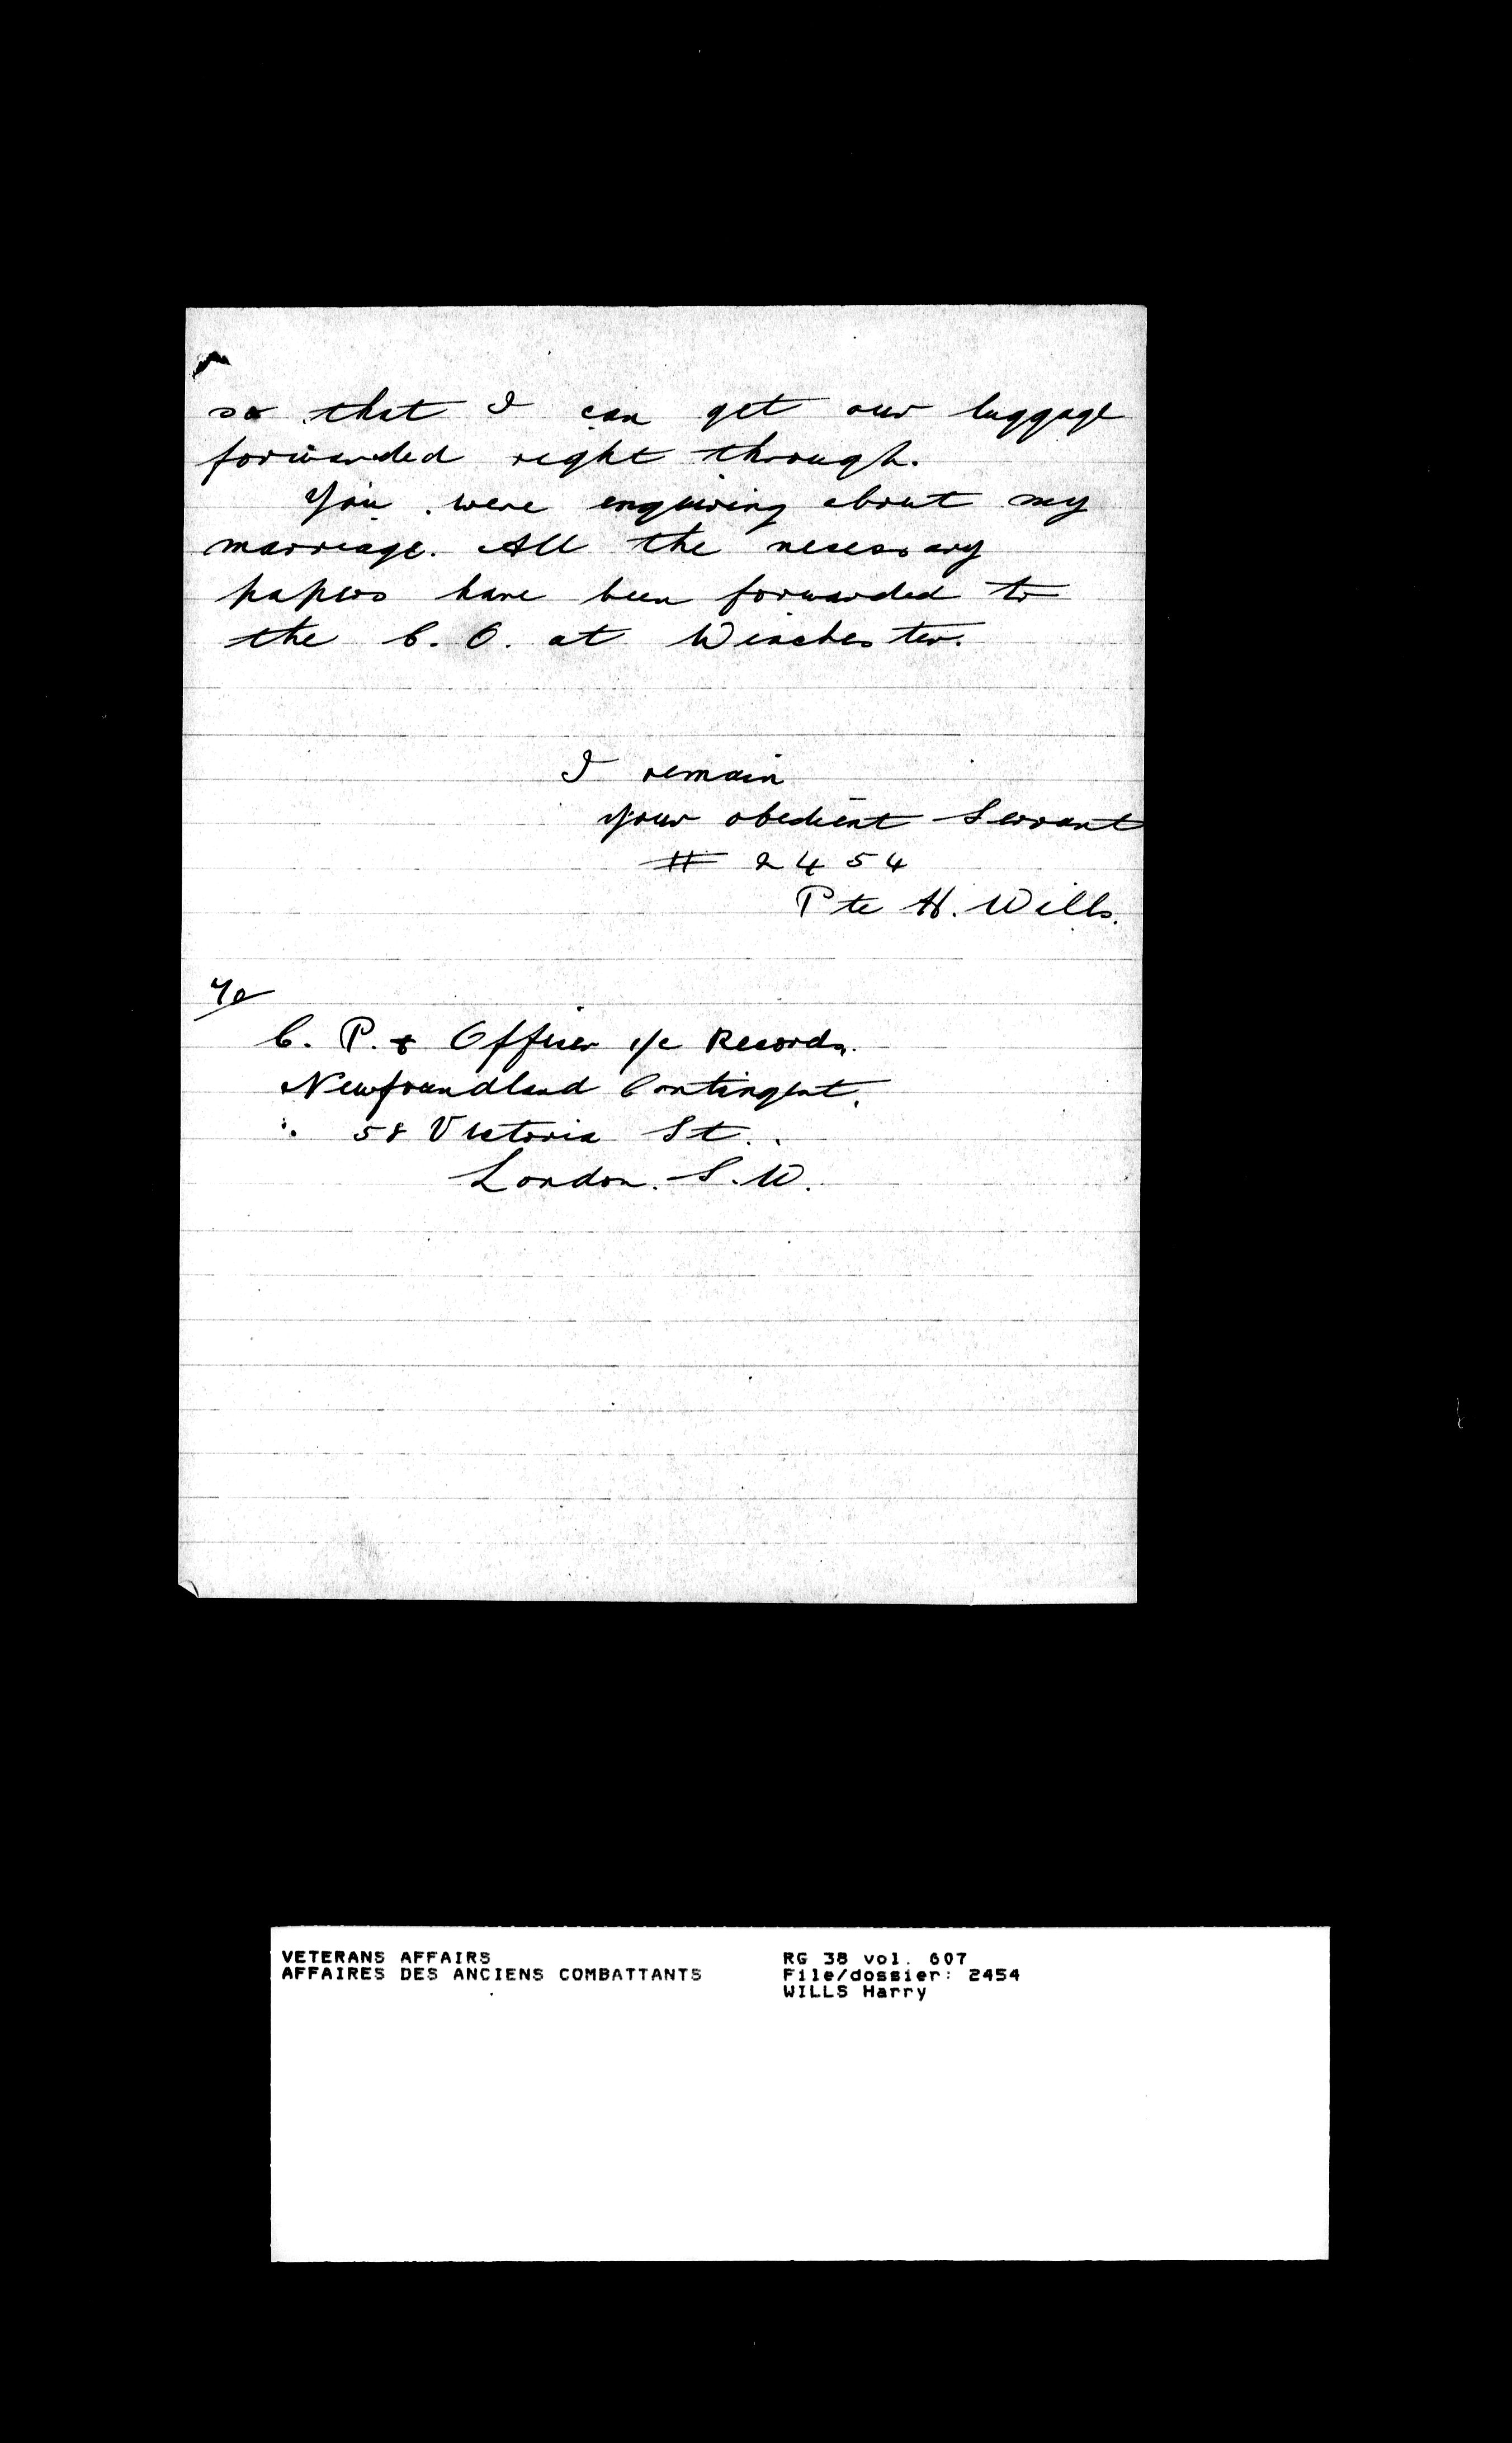 so that I can get our luggage
forwarded right through.
You were enquiring about my
marriage. All the necessary
papers have been forwarded to
the C. O. at Winchester.
I remain
your obedient Servant
# 2454
Pte H. Wills.
To
C. P. & Officer i/c Records.
Newfoundland Contingent.
58 Victoria St.
London. S.W.
VETERANS AFFAIRS
AFFAIRES DES ANCIENS COMBATTANTS
RG 38 vol. 607
File/dossier: 2454
WILLS Harry